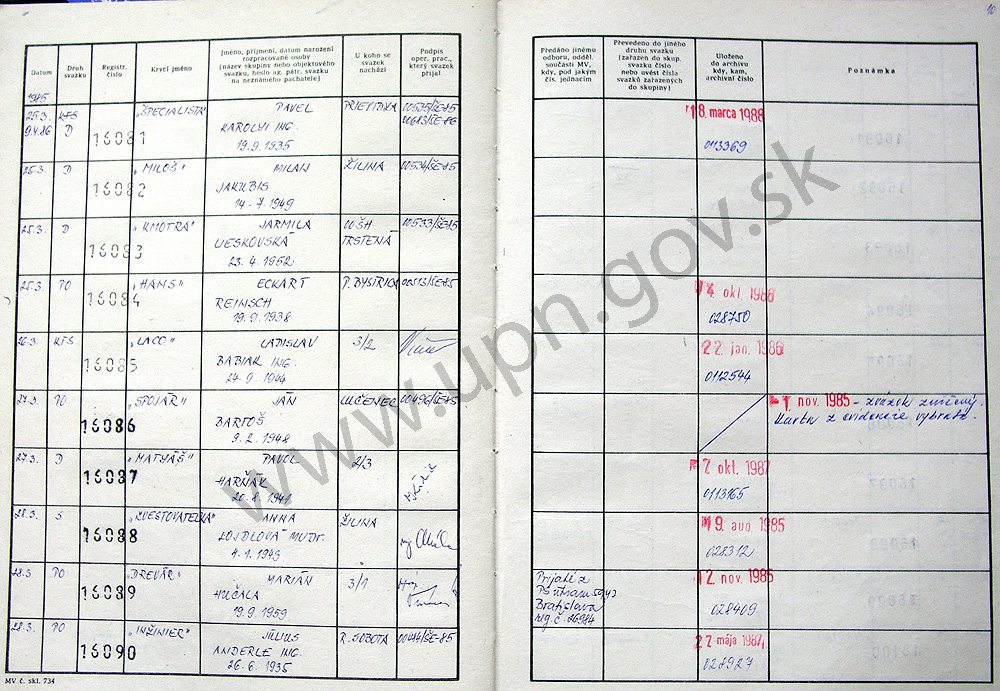 10
Datum
Druh svazku
Registr. číslo
Krycí jméno
Jméno, příjmení, datum narození
rozpracované osoby
(název skupiny nebo objektového
svazku, heslo ag. pátr. svazku
na neznámého pachatele)
U koho se
svazek
nachází
Podpis
oper. prac.,
který svazek
přijal
Předáno jinému
odboru, odděl.
součásti MV,
kdy, pod jakým
čís. jednacím
Převedeno do jiného
druhu svazku
(zařazen do skup.
svazku číslo
nebo uvést čísla
svazků zařazených
do skupiny)
Uloženo
do archivu
kdy, kam,
archivní číslo
Poznámka
1985
25.3. KTS 16081 "ŠPECIALISTA" PAVEL PRIEVIDZA 00535/ŠE-85
9.4.86 D KAROLYI ING. 00613/ŠE-86
19.9.1935
18. marca 1988
013369
25.3. D 16082 "MILOŠ" MILAN ŽILINA 00534/ŠE-85
JAKUBIS
14.7.1949
25.3. D 16083 "KMOTRA" JARMILA OOŠH 00533/ŠE-85
LIESKOVSKÁ TRSTENÁ
23.4.1952
25.3 PO 16084 "HANS" ECKART P. BYSTRICA 00513/ŠE-85
REINSCH
19.9.1938
14. okt. 1986
028750
26.3. KTS 16085 "LACO" LADISLAV 3/2
BABIAK ING.
27.9.1944
22. jan. 1986
0112544
27.3. PO 16086 "SPOJÁR" JÁN LUČENEC 00496/ŠE-85
BARTOŠ
9.2.1948
-1. nov. 1985 - zväzok zničený.
Karta z evidencie vybratá.
27.3. D 16087 "MATYÁŠ" PAVOL 2/3
HARŇÁK
20.8.1941
7 okt. 1987
0113165
28.3. S 16088 "ZVESTOVATEĽKA" ANNA ŽILINA
LOJDLOVÁ MUDr.
4.1.1943
19. aug. 1985
028312
28.3 PO 16089 "DREVÁR" MARIÁN 3/1
HÚČALA
19.9.1959
Prijaté z
Bratislava
reg. č. 26984
12. nov. 1985
028409
28.3. PO 16090 "INŽINIER" JÚLIUS R. SOBOTA
ANDERLE ING.
26.6.1935
27 mája 1987
028927
MV č. skl. 734
www.upn.gov.sk